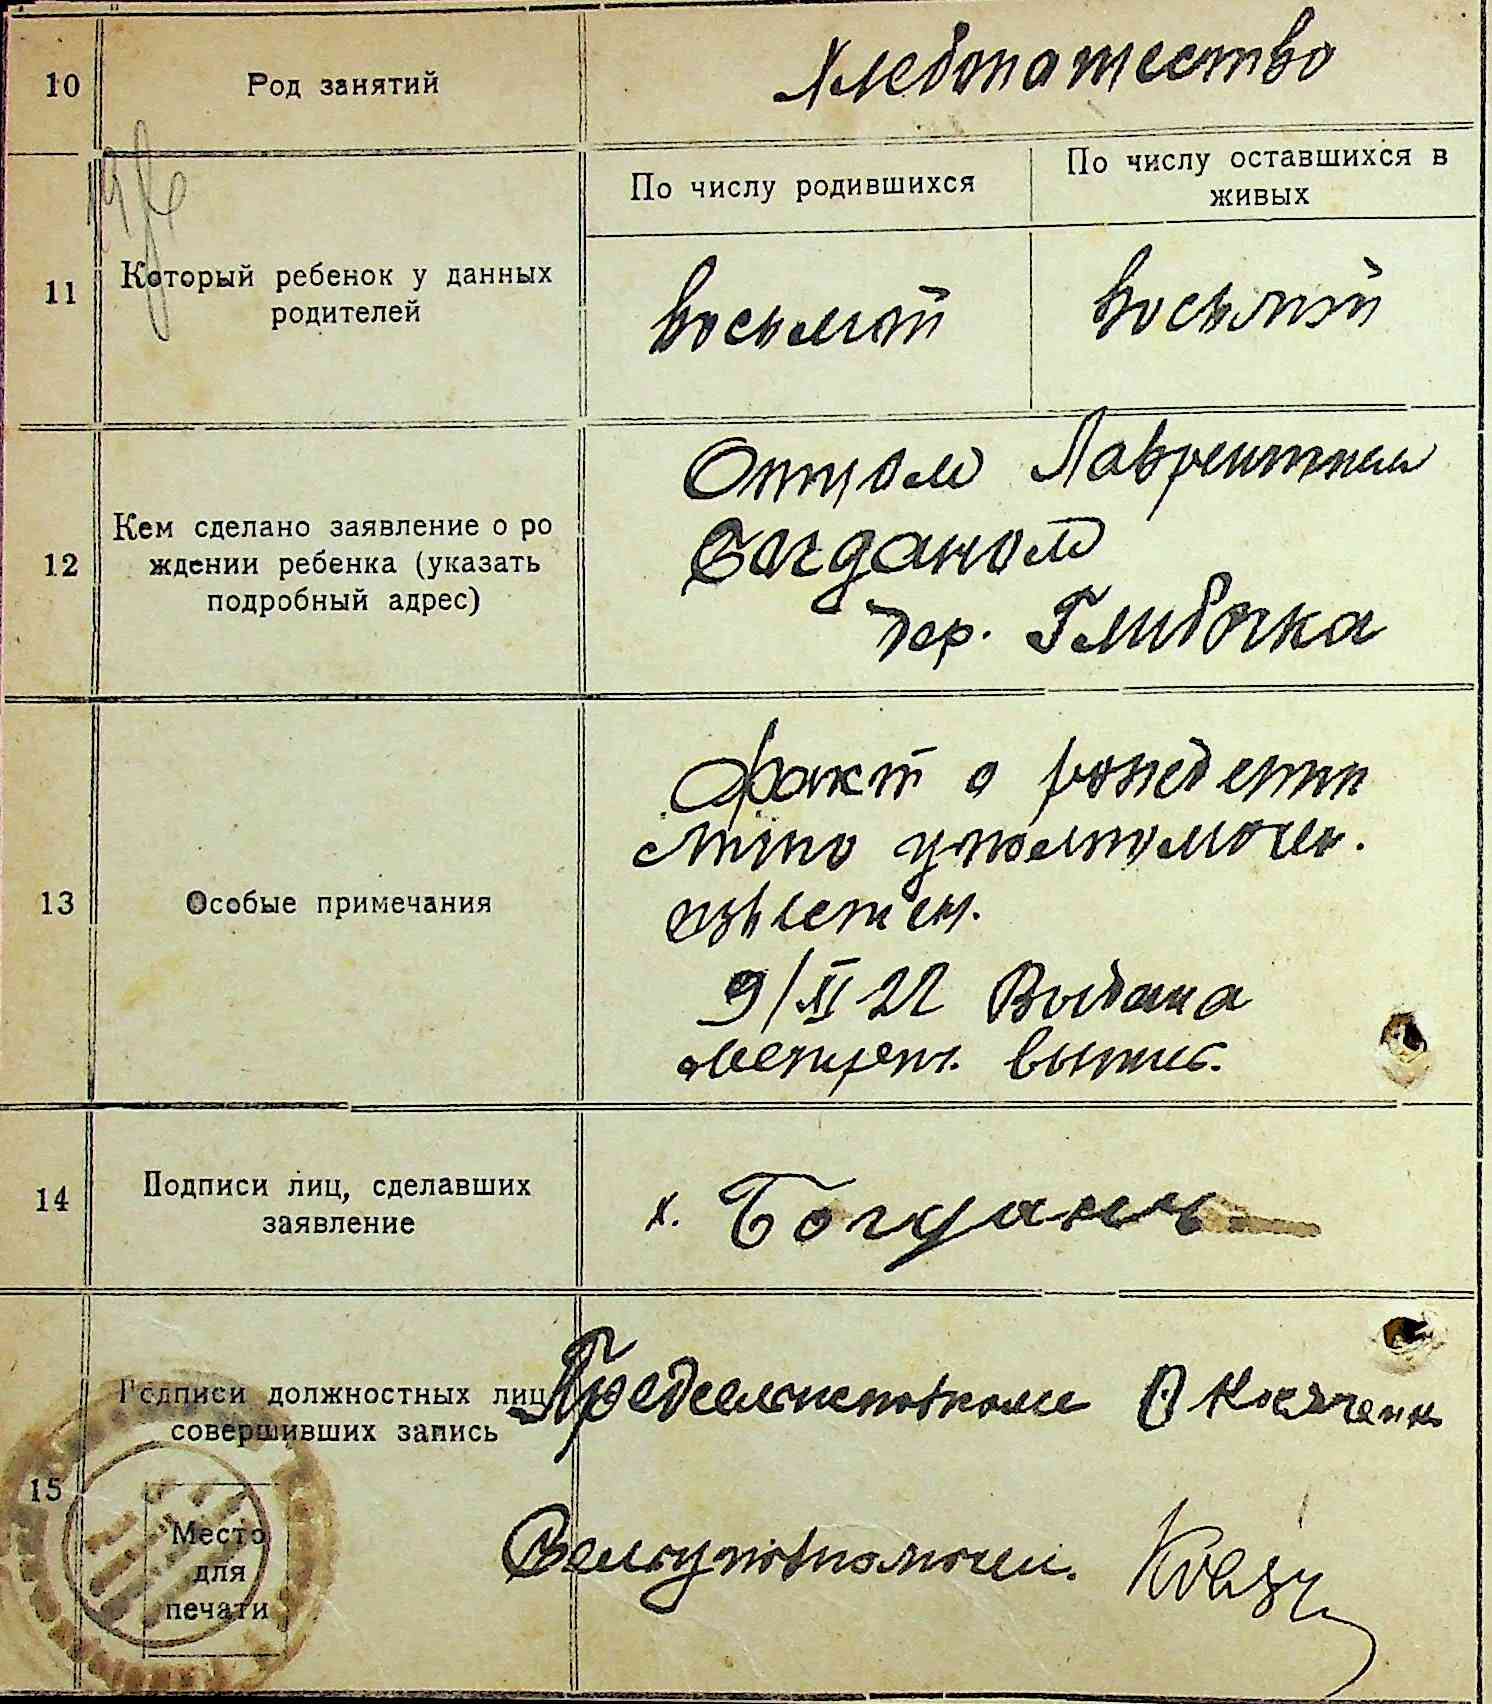 10
Род занятий
Хлебопашество
11
Который ребенок у данных
родителей
По числу родившихся
По числу оставшихся в
живых
Восьмой
Восьмой
12
Кем сделано заявление о ро
ждении ребенка (указать
подробный адрес)
Отцом Лаврентием
Богданом
дер. Глибочка
13
Особые примечания
Факт о рождении
уполномочен.
9/XI 22 Выдана
метрич. выпис.
14
Подписи лиц, сделавших
заявление
х. Богданъ
15
Подписи должностных лиц
совершивших запись
Место
для
печати